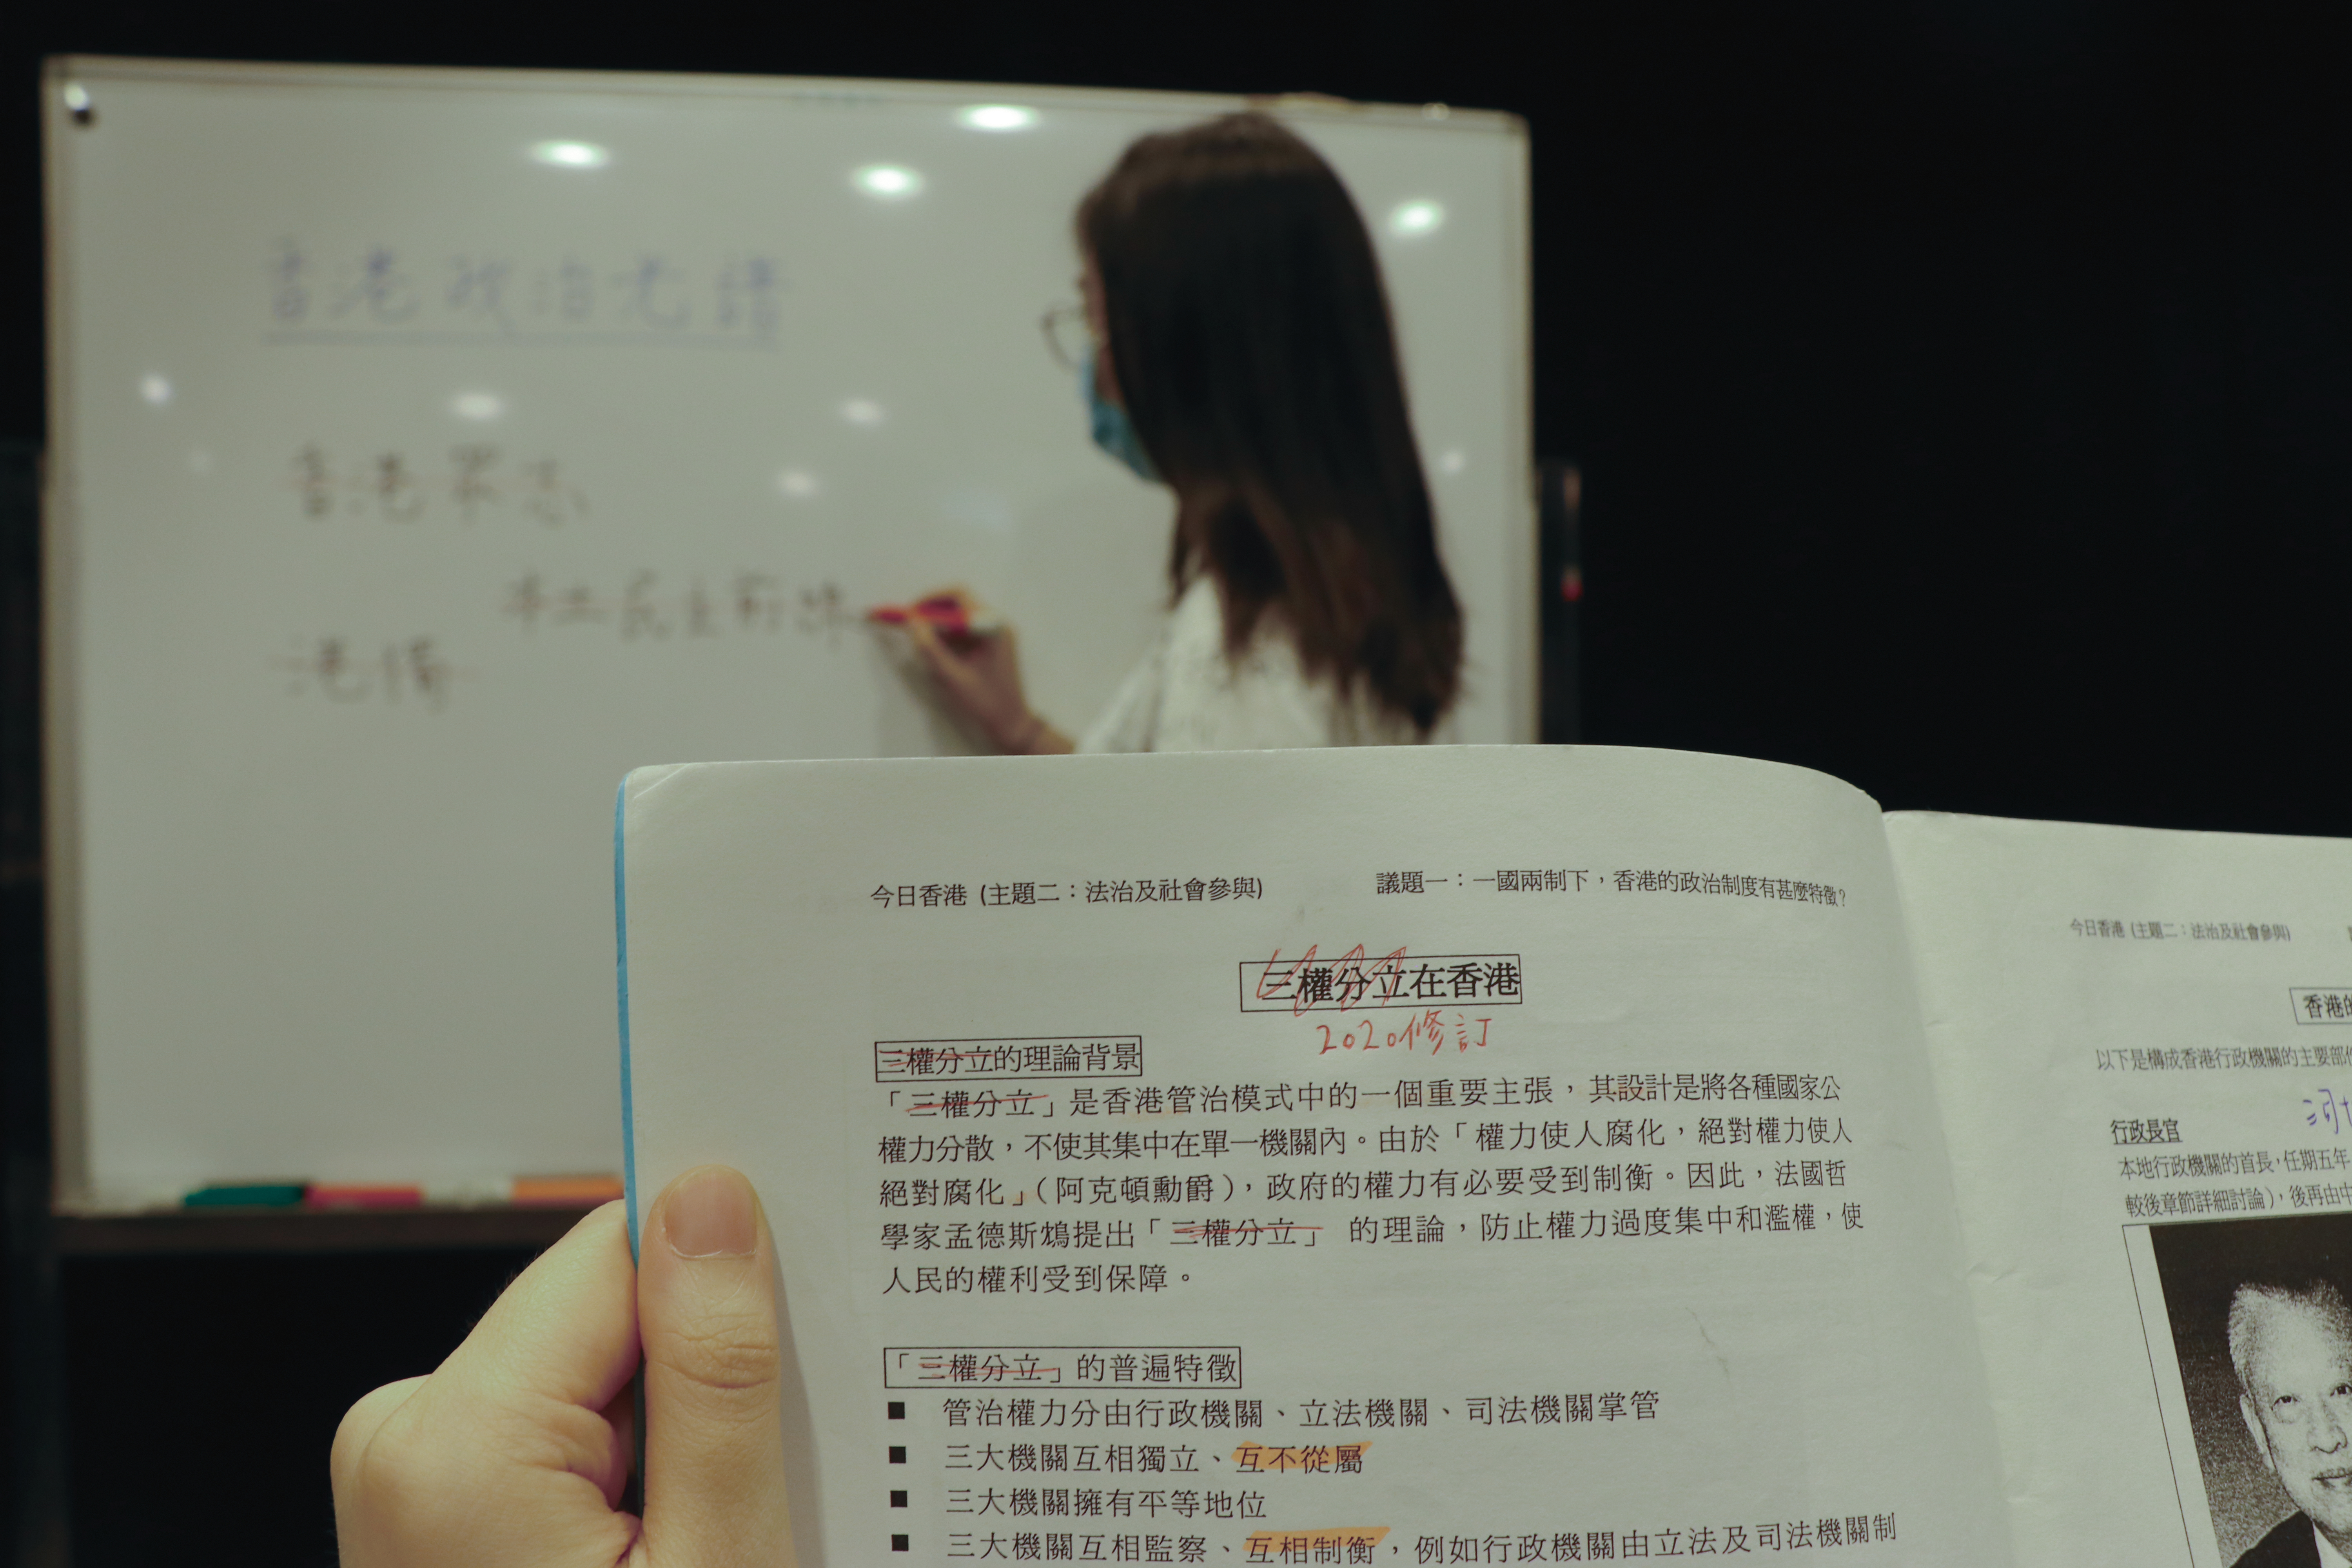 香港政治光譜
香港眾志
本土民主前線
港獨
今日香港 (主題二：法治及社會參與)
議題一：一國兩制下，香港的政治制度有甚麼特徵？
三權分立在香港
2020修訂
三權分立的理論背景
「三權分立」是香港管治模式中的一個重要主張，其設計是將各種國家公
權力分散，不使其集中在單一機關內。由於「權力使人腐化，絕對權力使人
絕對腐化」（阿克頓勳爵），政府的權力有必要受到制衡。因此，法國哲
學家孟德斯鳩提出「三權分立」 的理論，防止權力過度集中和濫權，使
人民的權利受到保障。
「三權分立」的普遍特徵
■ 管治權力分由行政機關、立法機關、司法機關掌管
■ 三大機關互相獨立、互不從屬
■ 三大機關擁有平等地位
■ 三大機關互相監察、互相制衡，例如行政機關由立法及司法機關制
今日香港 (主題二：法治及社會參與)
香港的
以下是構成香港行政機關的主要部
行政長官
本地行政機關的首長，任期五年
較後章節詳細討論)，後再由中